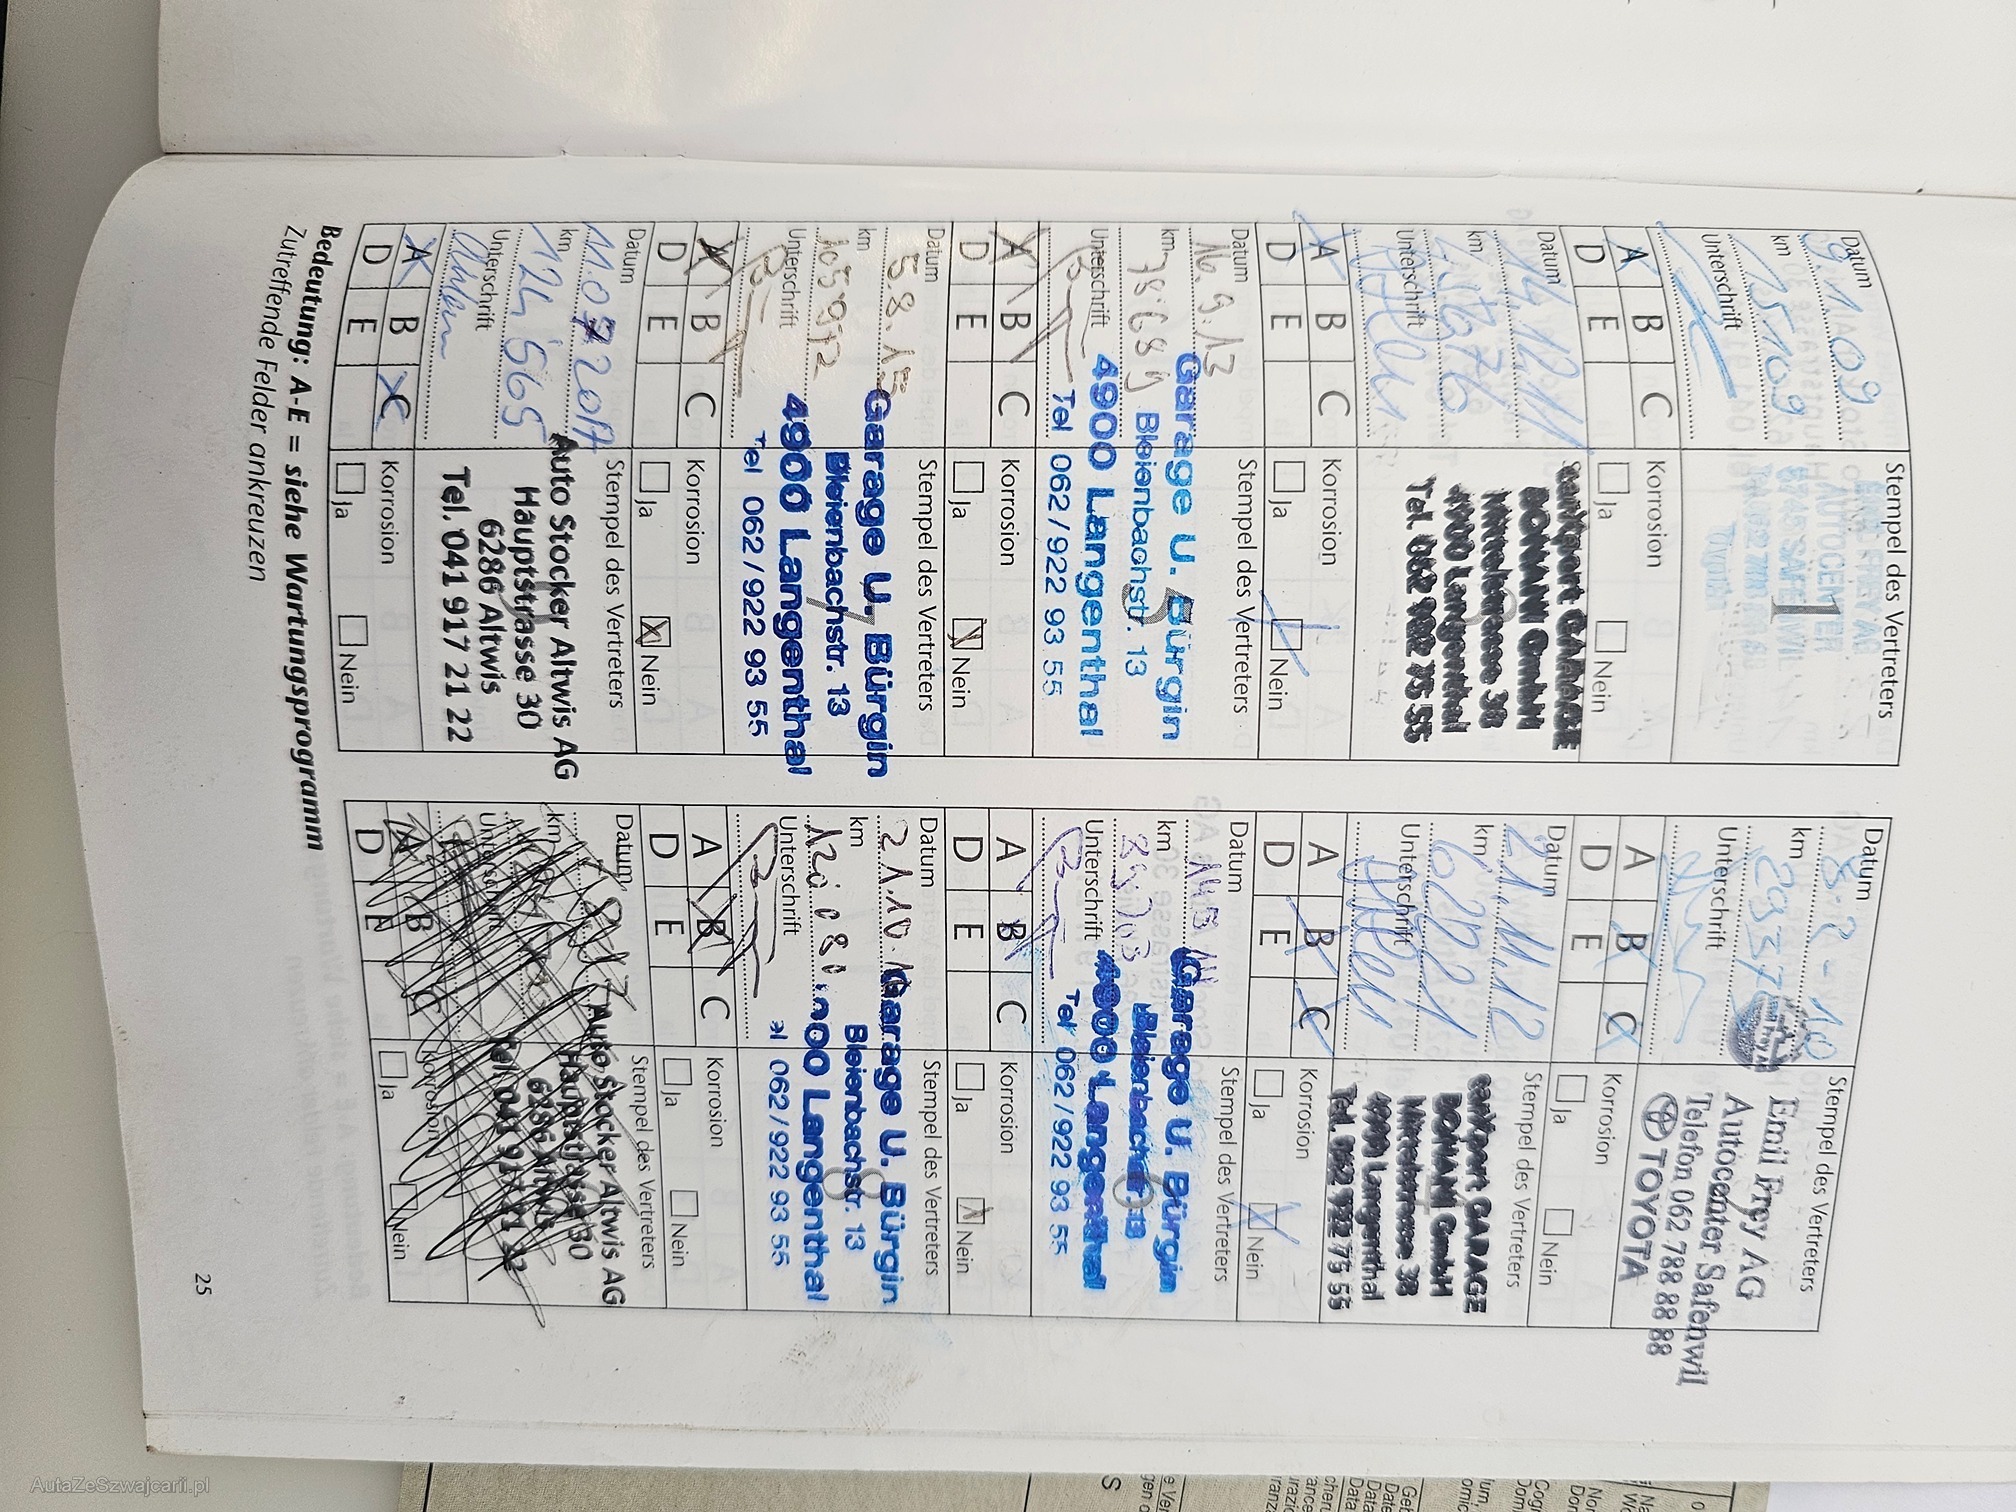 Datum
9.1.09
km
15109
Unterschrift
Stempel des Vertreters
1
EMIL FREY AG
AUTOCENTER
A B C
D E
Korrosion
Ja Nein
Datum
km
29377
Unterschrift
Stempel des Vertreters
Emil Frey AG
Autocenter Safenwil
Telefon 062 788 88 88
TOYOTA
A B C
D E
Korrosion
Ja Nein
Datum
14.12.11
km
Unterschrift
car4port GARAGE
BONANI GmbH
Mittelstrasse 38
4900 Langenthal
Tel. 062 922 75 55
A B C
D E
Korrosion
Ja Nein
Datum
21.11.12
km
62021
Unterschrift
Stempel des Vertreters
car4port GARAGE
BONANI GmbH
Mittelstrasse 38
4900 Langenthal
Tel. 062 922 75 55
A B C
D E
Korrosion
Ja Nein
Datum
16.9.13
km
78689
Unterschrift
Stempel des Vertreters
5
Garage U. Bürgin
Bleienbachstr. 13
4900 Langenthal
Tel 062/922 93 55
A B C
D E
Korrosion
Ja Nein
Datum
km
Unterschrift
Stempel des Vertreters
6
Garage U. Bürgin
Bleienbachstr. 13
4900 Langenthal
Tel 062/922 93 55
A B C
D E
Korrosion
Ja Nein
Datum
5.8.15
km
105912
Unterschrift
Stempel des Vertreters
7
Garage U. Bürgin
Bleienbachstr. 13
4900 Langenthal
Tel 062/922 93 55
A B C
D E
Korrosion
Ja Nein
Datum
21.10.
km
Unterschrift
Stempel des Vertreters
8
Garage U. Bürgin
Bleienbachstr. 13
900 Langenthal
el 062/922 93 55
A B C
D E
Korrosion
Ja Nein
Datum
11.07.2017
km
124'565
Unterschrift
Stempel des Vertreters
Auto Stocker Altwis AG
Hauptstrasse 30
6286 Altwis
Tel. 041 917 21 22
A B C
D E
Korrosion
Ja Nein
Datum
km
Unterschrift
Stempel des Vertreters
Auto Stocker Altwis AG
Hauptstrasse 30
6286 Altwis
Tel. 041 917 21 22
A B C
D E
Korrosion
Ja Nein
Bedeutung: A-E = siehe Wartungsprogramm
Zutreffende Felder ankreuzen
25
AutaZeSzwajcarii.pl